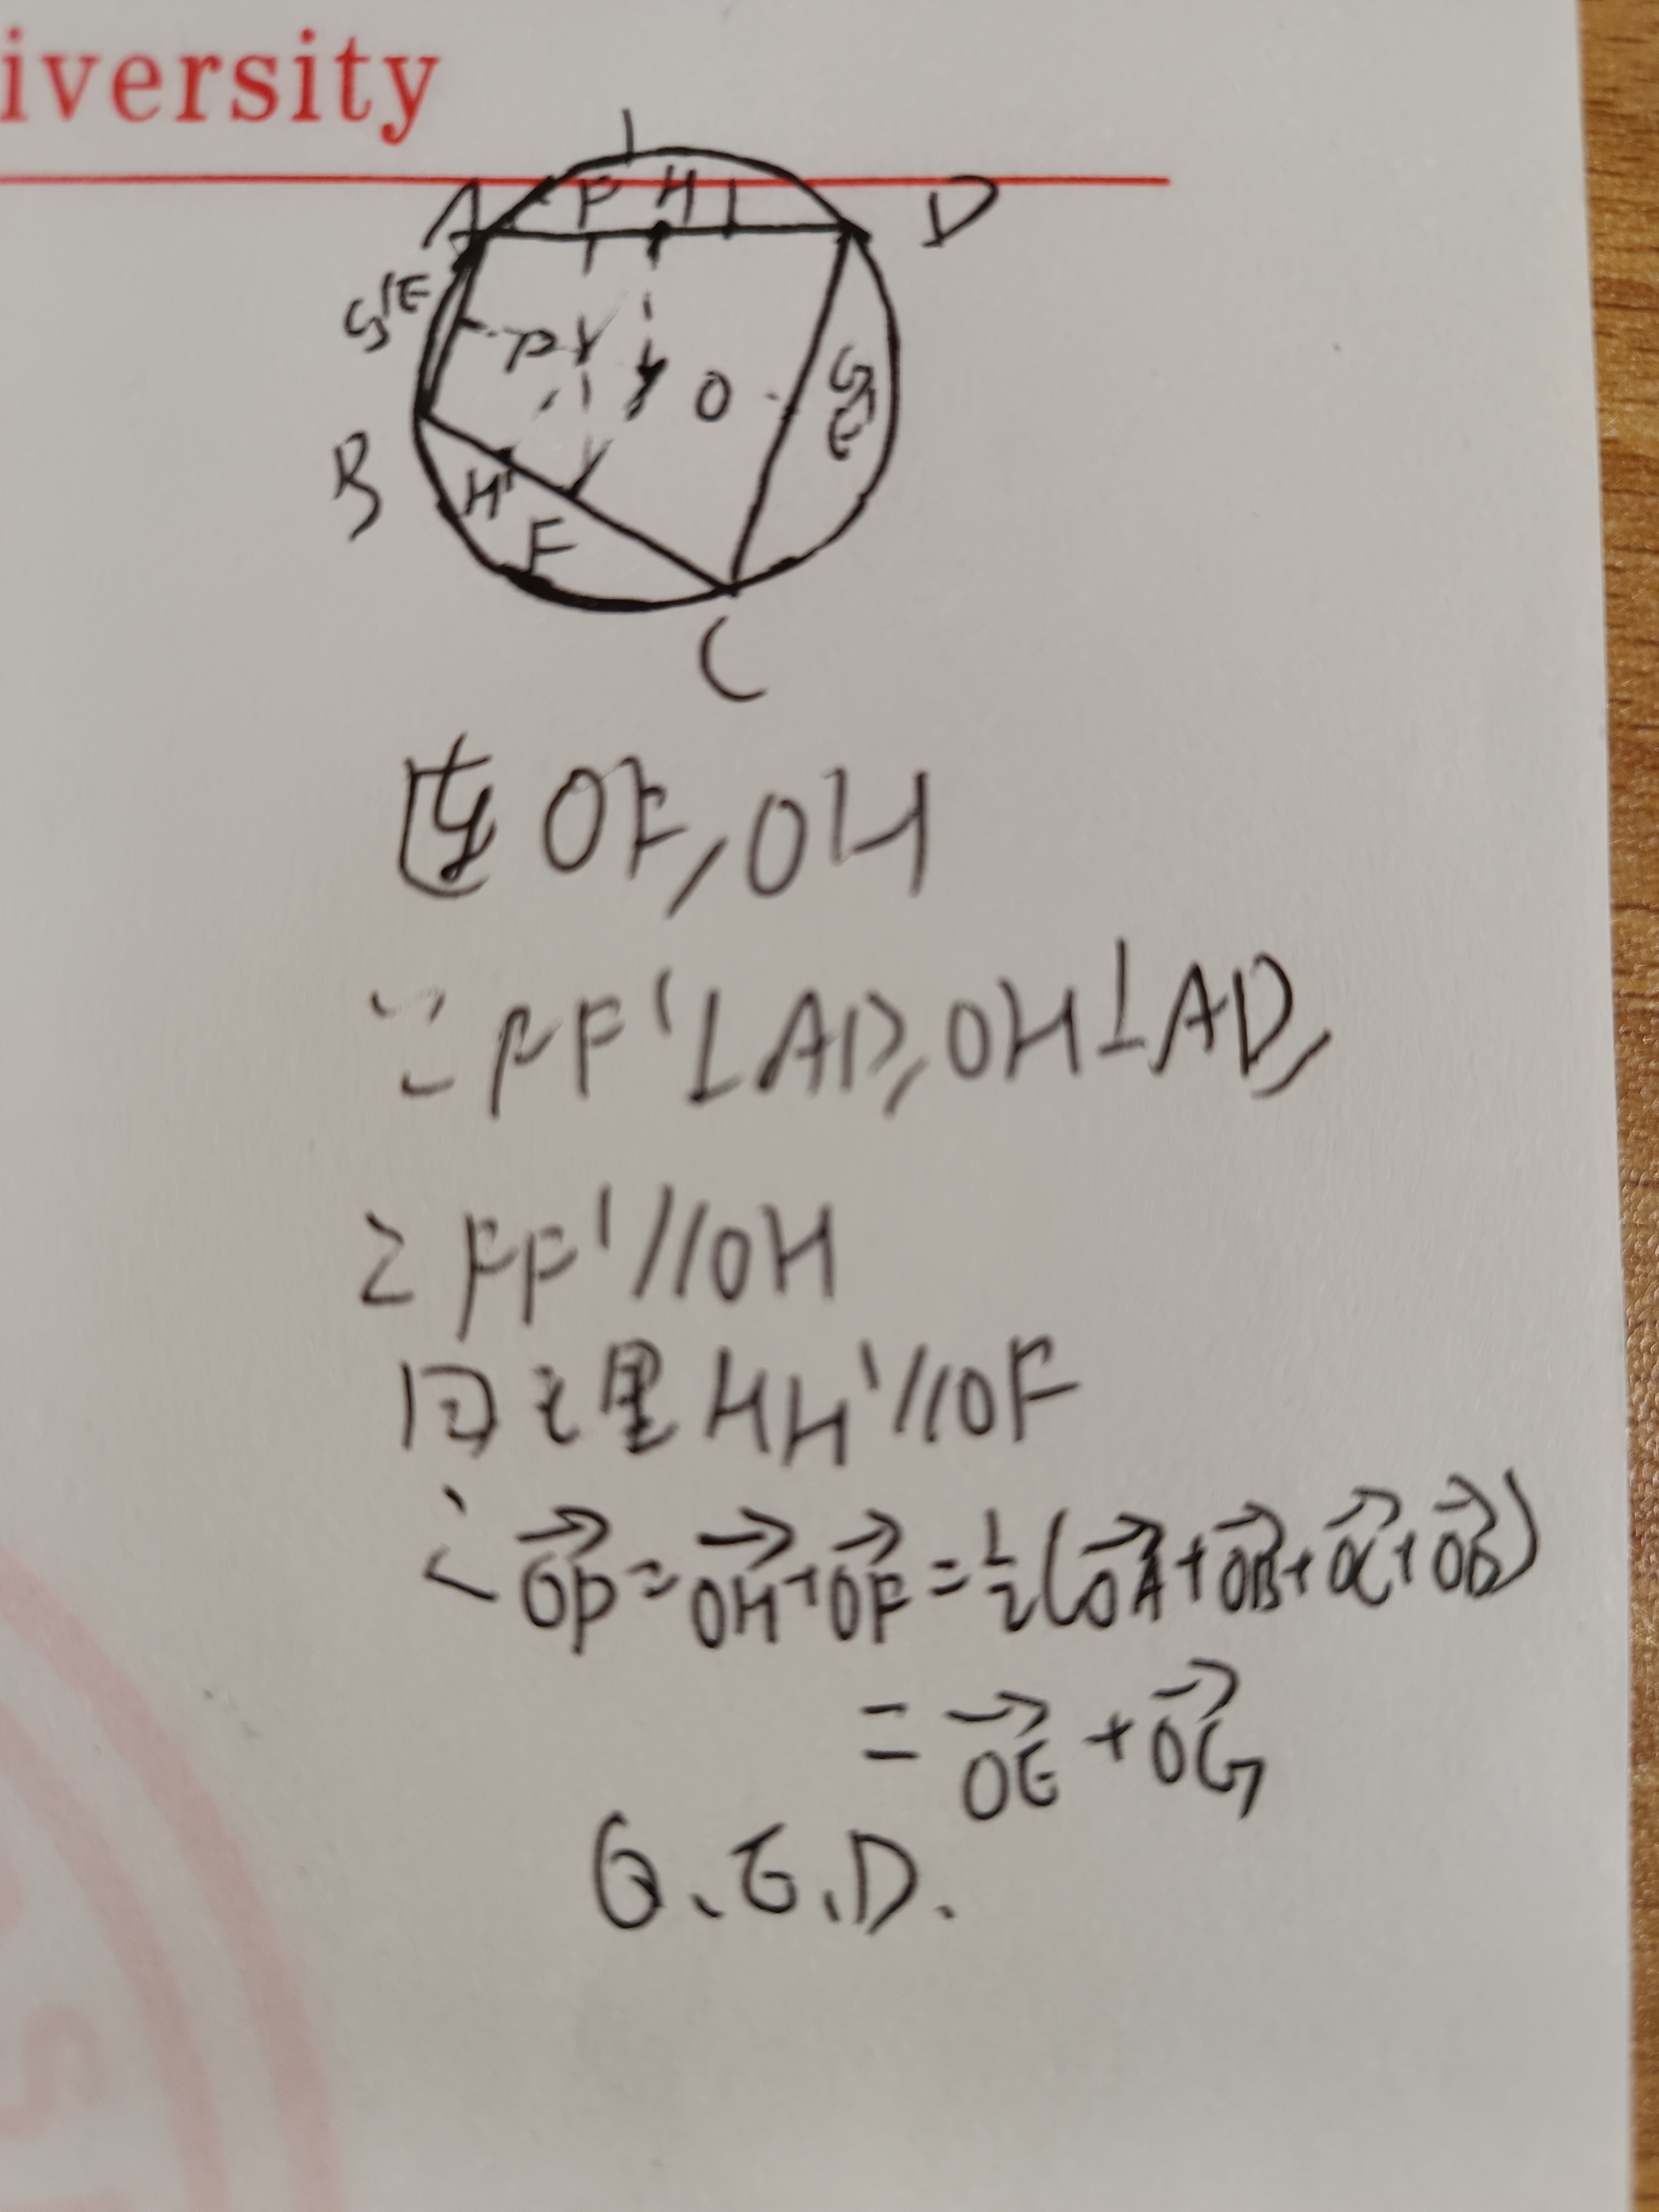 iversity
A F' H D
G'E
P O G E'
B H' F
C
连OF,OH
∵FF'⊥AD,OH⊥AD,
∴FF'//OH
同理HH'//OF
∴OP=OH+OF=½(OA+OB+OC+OD)
=OE+OG
Q.E.D.